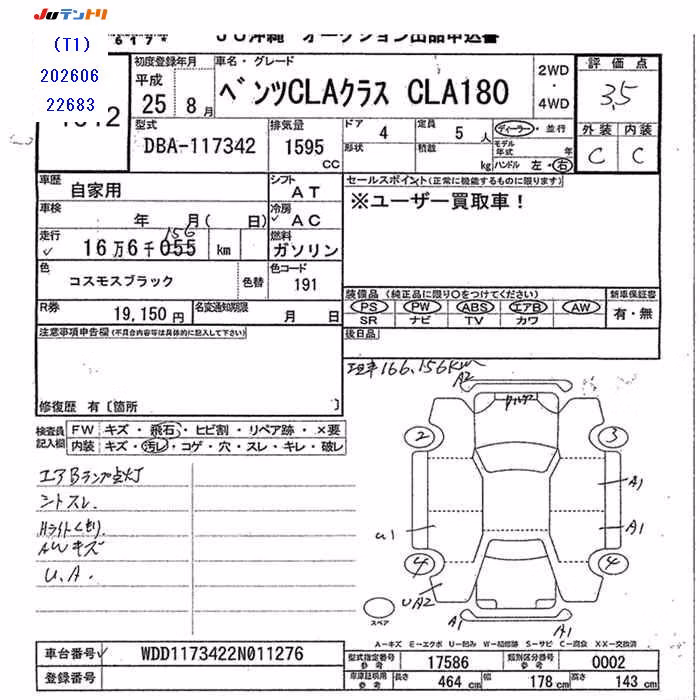 JUテントリ
(T1)
202606
22683
617*
JU沖縄 オークション出品申込書
初度登録年月 車名・グレード
平成
25年 8月
ベンツCLAクラス CLA180
2WD
・
4WD
評価点
3.5
外装 内装
C C
型式 DBA-117342
排気量 1595 CC
ドア 4
定員 5 人
形状
積載 kg
ディーラー・並行
モデル年式 年
ハンドル 左・右
車歴 自家用
シフト AT
車検 年 月( 日)
冷房 AC
走行 16万6千055 km
156
燃料 ガソリン
色 コスモスブラック 色替
色コード 191
R券 19,150円
名変通知期限 月 日
セールスポイント(正常に機能するものに限ります)
※ユーザー買取車!
装備品(純正品に限り○をつけてください)
PS PW ABS エアB AW
SR ナビ TV カワ
新車保証書
有・無
後日品
注意事項申告欄(不具合内容等は具体的に記入して下さい)
修復歴 有〔箇所 〕
166,156km
検査員記入欄
FW キズ・飛石・ヒビ割・リペア跡・×要
内装 キズ・汚れ・コゲ・穴・スレ・キレ・破レ
エアBランプ点灯
シートスレ
Hライトくもり
AWキズ
U.A.
A2
2
3
A1
A1
u1
4
4
UA2
A1
A1
スペア
A-キズ E-エクボ U-凹み W-補修跡 S-サビ C-腐食 XX-交換済
車台番号 WDD1173422N011276
登録番号
型式指定番号 参考 17586
類別区分番号 参考 0002
車庫証明用 参考 長さ 464 cm 幅 178 cm 高さ 143 cm